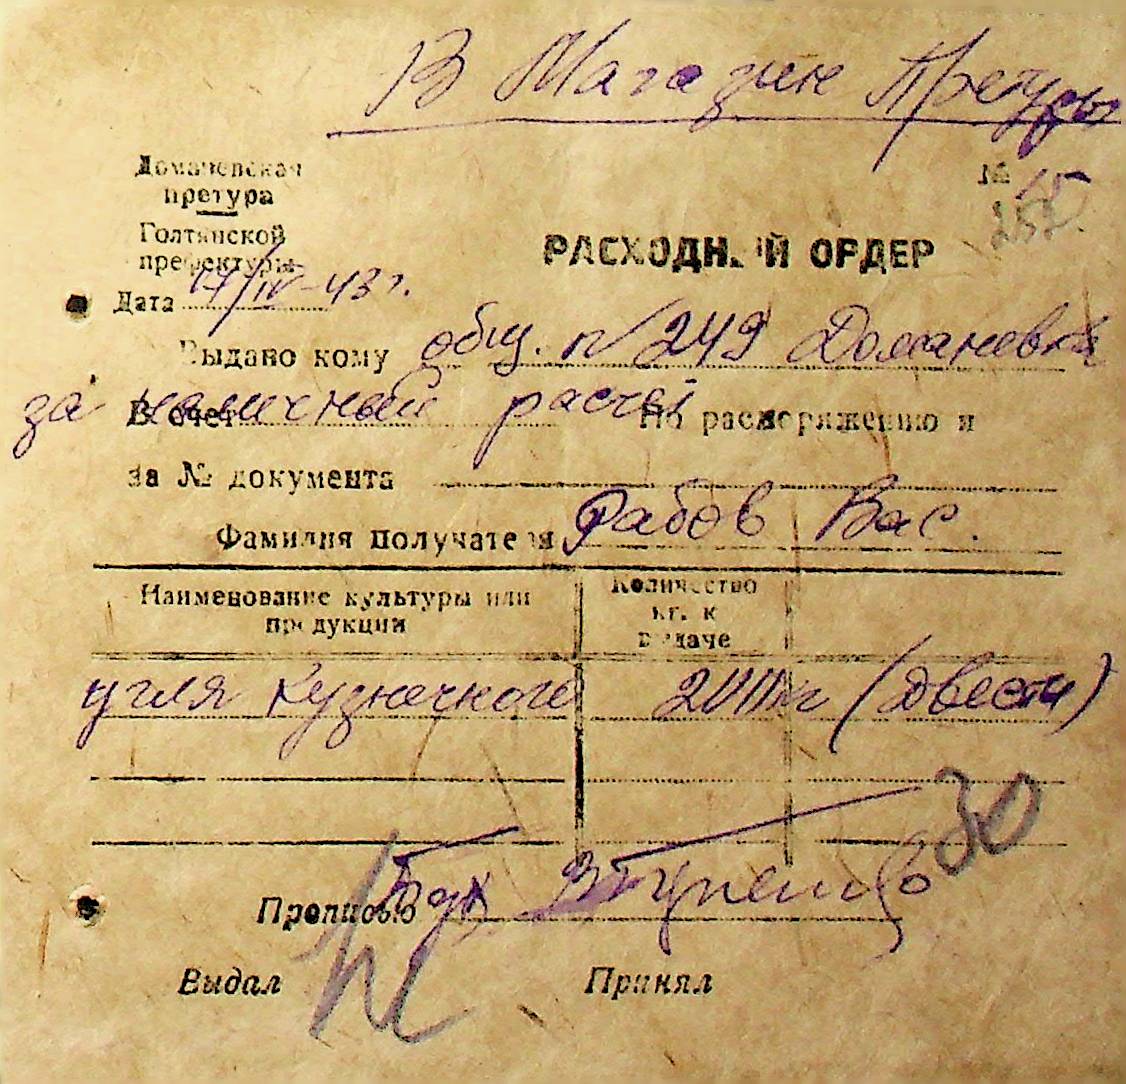 В Магазин Претуры
Доманевская
претура
№ 15
252.
Голтянской
префектуры
РАСХОДНЫЙ ОРДЕР
Дата 17/IV-43 г.
Выдано кому общ. n 249 Доманевка
за наличный расчет
В счет По распоряжению и
за № документа
Фамилия получателя Рабов Вас.
Наименование культуры или
продукции
Количество
кг. к
выдаче
угля Кузнечного 200 кг (двести)
30
Прописью
Выдал Принял